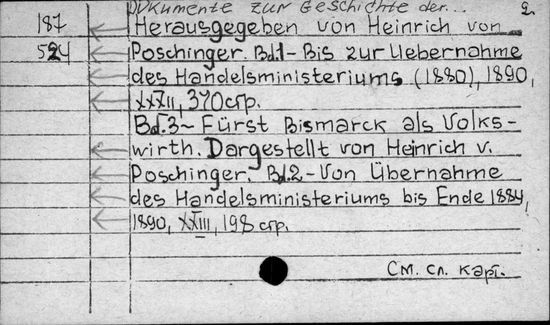 Dokumente zur Geschichte der... 2.
187 Herausgegeben von Heinrich von
524 Poschinger. Bd.1 - Bis zur Uebernahme
des Handelsministeriums (1880), 1890,
XXXII, 370 стр.
Bd.3 - Fürst Bismarck als Volks-
wirth. Dargestellt von Heinrich v.
Poschinger. Bd.2 - Von Übernahme
des Handelsministeriums bis Ende 1884,
1890, XXIII, 198 стр.
См. сл. карт.